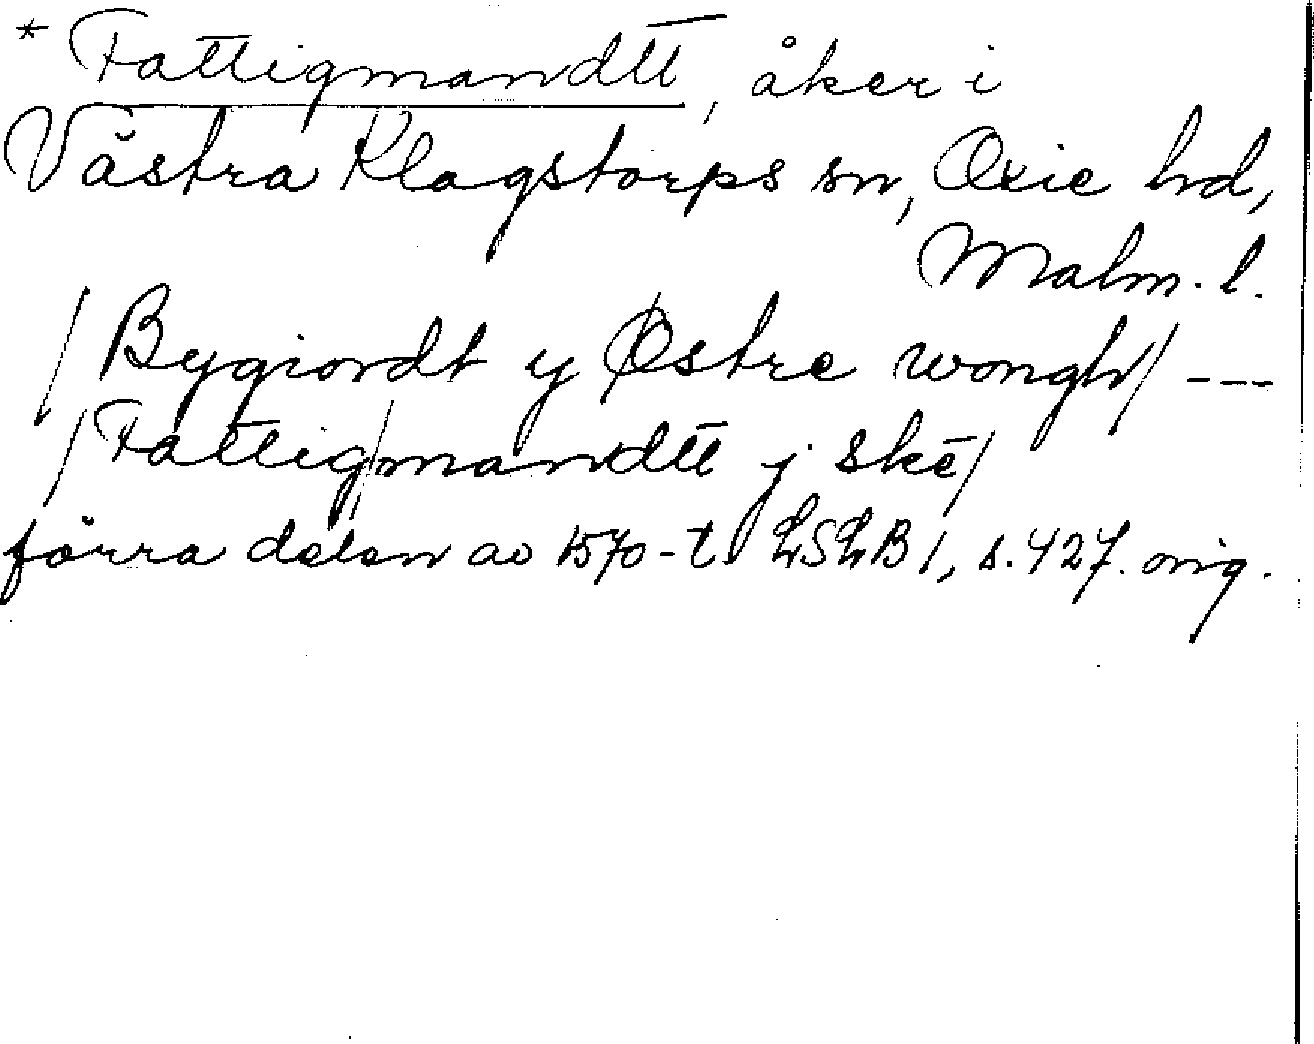 * Fattigmandtt, åker i
Västra Klagstorps sn, Oxie hd,
Malm. l.
/ Bygiordt y Østre wongh / ---
/ Fattig/mandtt j skē /
förra delen av 1570-t. LSLB 1, s. 427. orig.